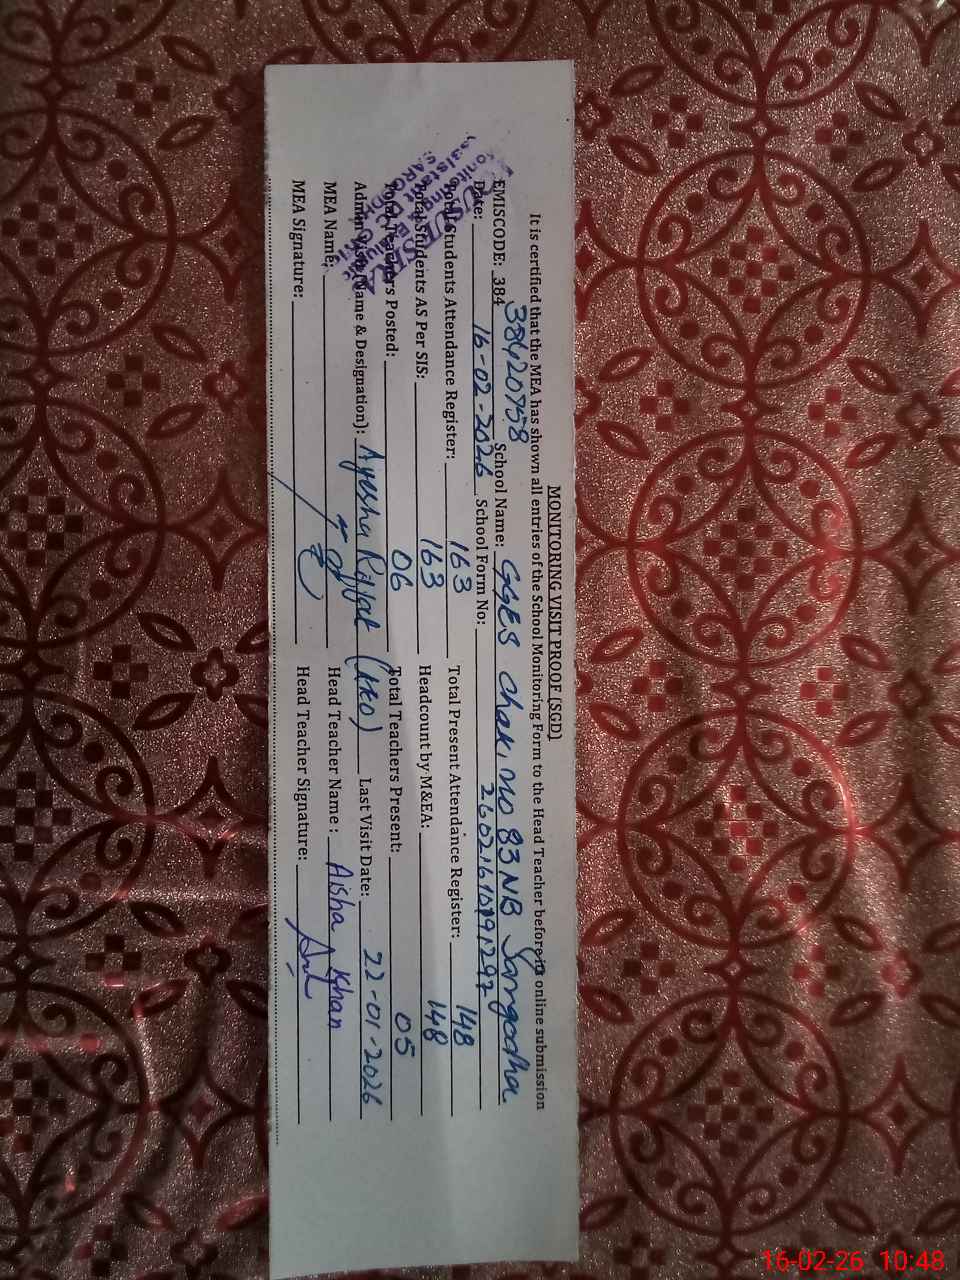 MONITORING VISIT PROOF [SGD]
It is certified that the MEA has shown all entries of the School Monitoring Form to the Head Teacher before its online submission
EMISCODE: 384 38420758 School Name: GGES Chak no 83NB Sargodha
Date: 16-02-2026 School Form No:
Total Students Attendance Register: 163 Total Present Attendance Register: 148
Total Students AS Per SIS: 163 Headcount by M&EA: 148
Total Teachers Posted: 06 Total Teachers Present: 05
Admin Visit (Name & Designation): Ayesha Riffat (AEO) Last Visit Date: 22-01-2026
MEA Name: Head Teacher Name : Aisha Khan
MEA Signature: Head Teacher Signature:
16-02-26 10:48